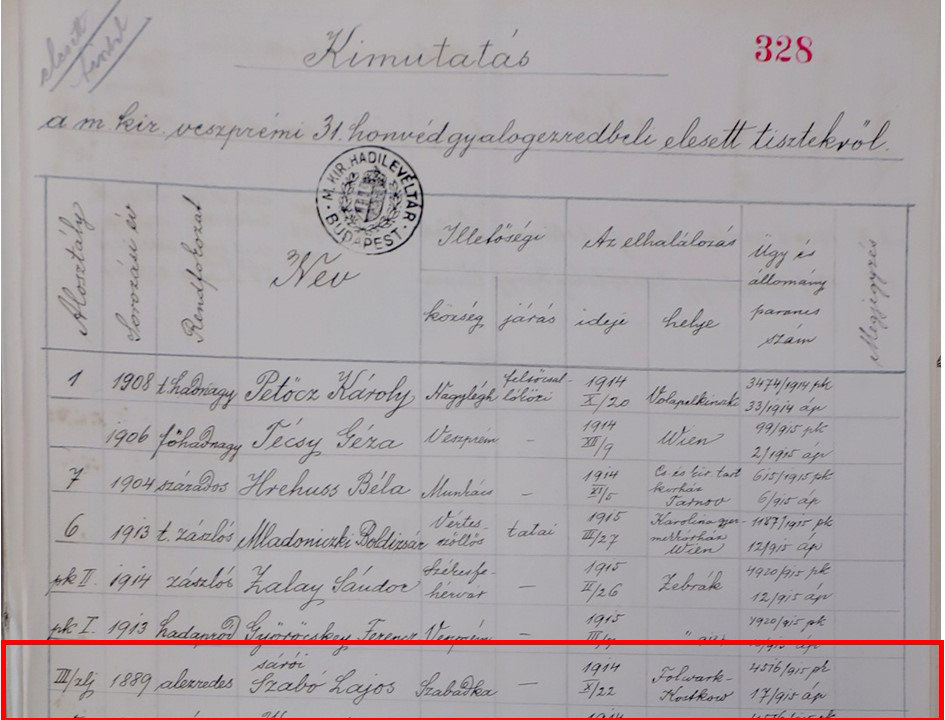 elesett
Kimutatás
328
a m. kir. veszprémi 31. honvédgyalogezredbeli elesett tisztekről.
M. KIR. HADILEVÉLTÁR
BUDAPEST
Alosztály Sorozási év Rendfokozat Név Illetőségi Az elhalálozás Ügy és állomány parancs szám Megjegyzés
község járás ideje helye
1 1908 t. hadnagy Petőcz Károly Nagylégh felsőcsallóközi 1914 X/20 3474/1914 pk
33/1914 áp
1906 főhadnagy Técsy Géza Veszprém – 1914 XII/9 Wien 99/915 pk
2/1915 áp
7 1904 százados Hrehuss Béla Munkács – 1914 Tarnov 615/1915 pk
6/915 áp
6 1913 t. zászlós Mladoniczki Boldizsár Vértesszőllős tatai 1915 III/27 Wien 1187/1915 pk
12/915 áp
pk II. 1914 zászlós Zalay Sándor Székesfehérvár – 1915 II/26 Zebrák 4920/915 pk
12/915 áp
pk I. 1913 hadapród Ferencz Veszprém 1915 4920/915
III/zlj 1889 alezredes sárói Szabó Lajos Szabadka – 1914 X/22 Folwark-Kostkow 4576/915 pk
17/915 áp
1914